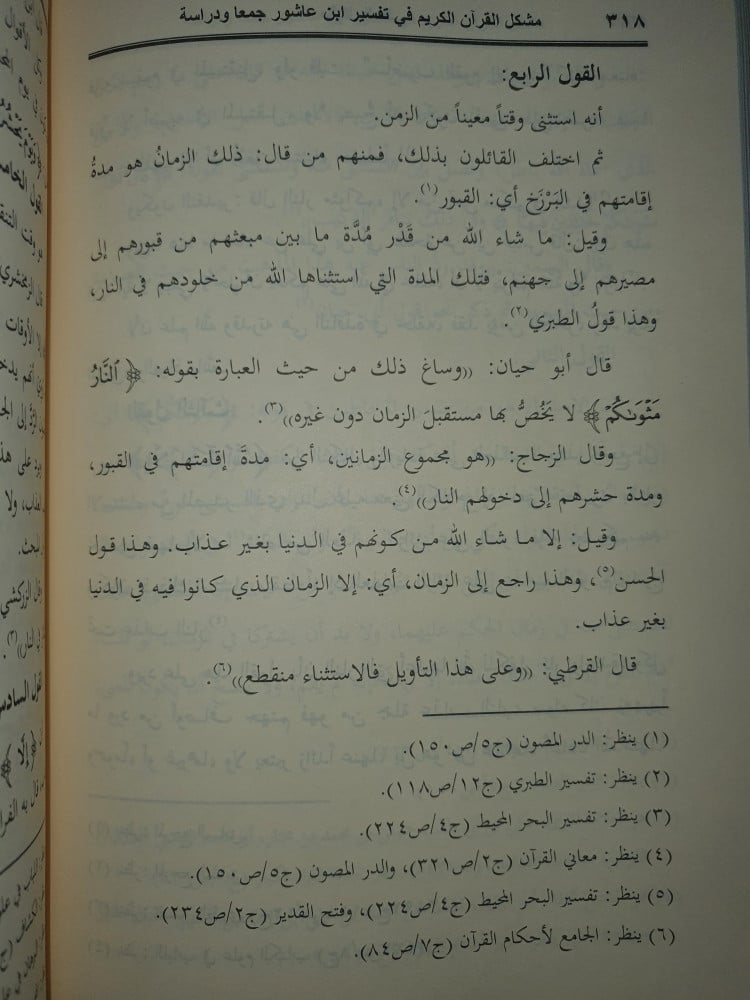 ٣١٨ مشكل القرآن الكريم في تفسير ابن عاشور جمعا ودراسة
القول الرابع:
أنه استثنى وقتاً معيناً من الزمن.
ثم اختلف القائلون بذلك، فمنهم من قال: ذلك الزمانُ هو مدةُ
إقامتهم في البَرْزَخ أي: القبور(١).
وقيل: ما شاء الله من قَدْر مُدَّة ما بين مبعثهم من قبورهم إلى
مصيرهم إلى جهنم، فتلك المدة التي استثناها الله من خلودهم في النار،
وهذا قولُ الطبري(٢).
قال أبو حيان: ((وساغ ذلك من حيث العبارة بقوله: ﴿ ٱلنَّارُ
مَثْوَىٰكُمْ ﴾ لا يَخُصُّ بها مستقبلَ الزمان دون غيره))(٣).
وقال الزجاج: ((هو مجموع الزمانين، أي: مدةَ إقامتهم في القبور،
ومدة حشرهم إلى دخولهم النار))(٤).
وقيل: إلا ما شاء الله من كونهم في الدنيا بغير عذاب. وهذا قول
الحسن(٥)، وهذا راجع إلى الزمان، أي: إلا الزمان الذي كانوا فيه في الدنيا
بغير عذاب.
قال القرطبي: ((وعلى هذا التأويل فالاستثناء منقطع))(٦).
(١) ينظر: الدر المصون (ج٥/ص١٥٠).
(٢) ينظر: تفسير الطبري (ج١٢/ص١١٨).
(٣) ينظر: تفسير البحر المحيط (ج٤/ص٢٢٤).
(٤) ينظر: معاني القرآن (ج٢/ص٣٢١)، والدر المصون (ج٥/ص١٥٠).
(٥) ينظر: تفسير البحر المحيط (ج٤/ص٢٢٤)، وفتح القدير (ج٢/ص٢٣٤).
(٦) ينظر: الجامع لأحكام القرآن (ج٧/ص٨٤).